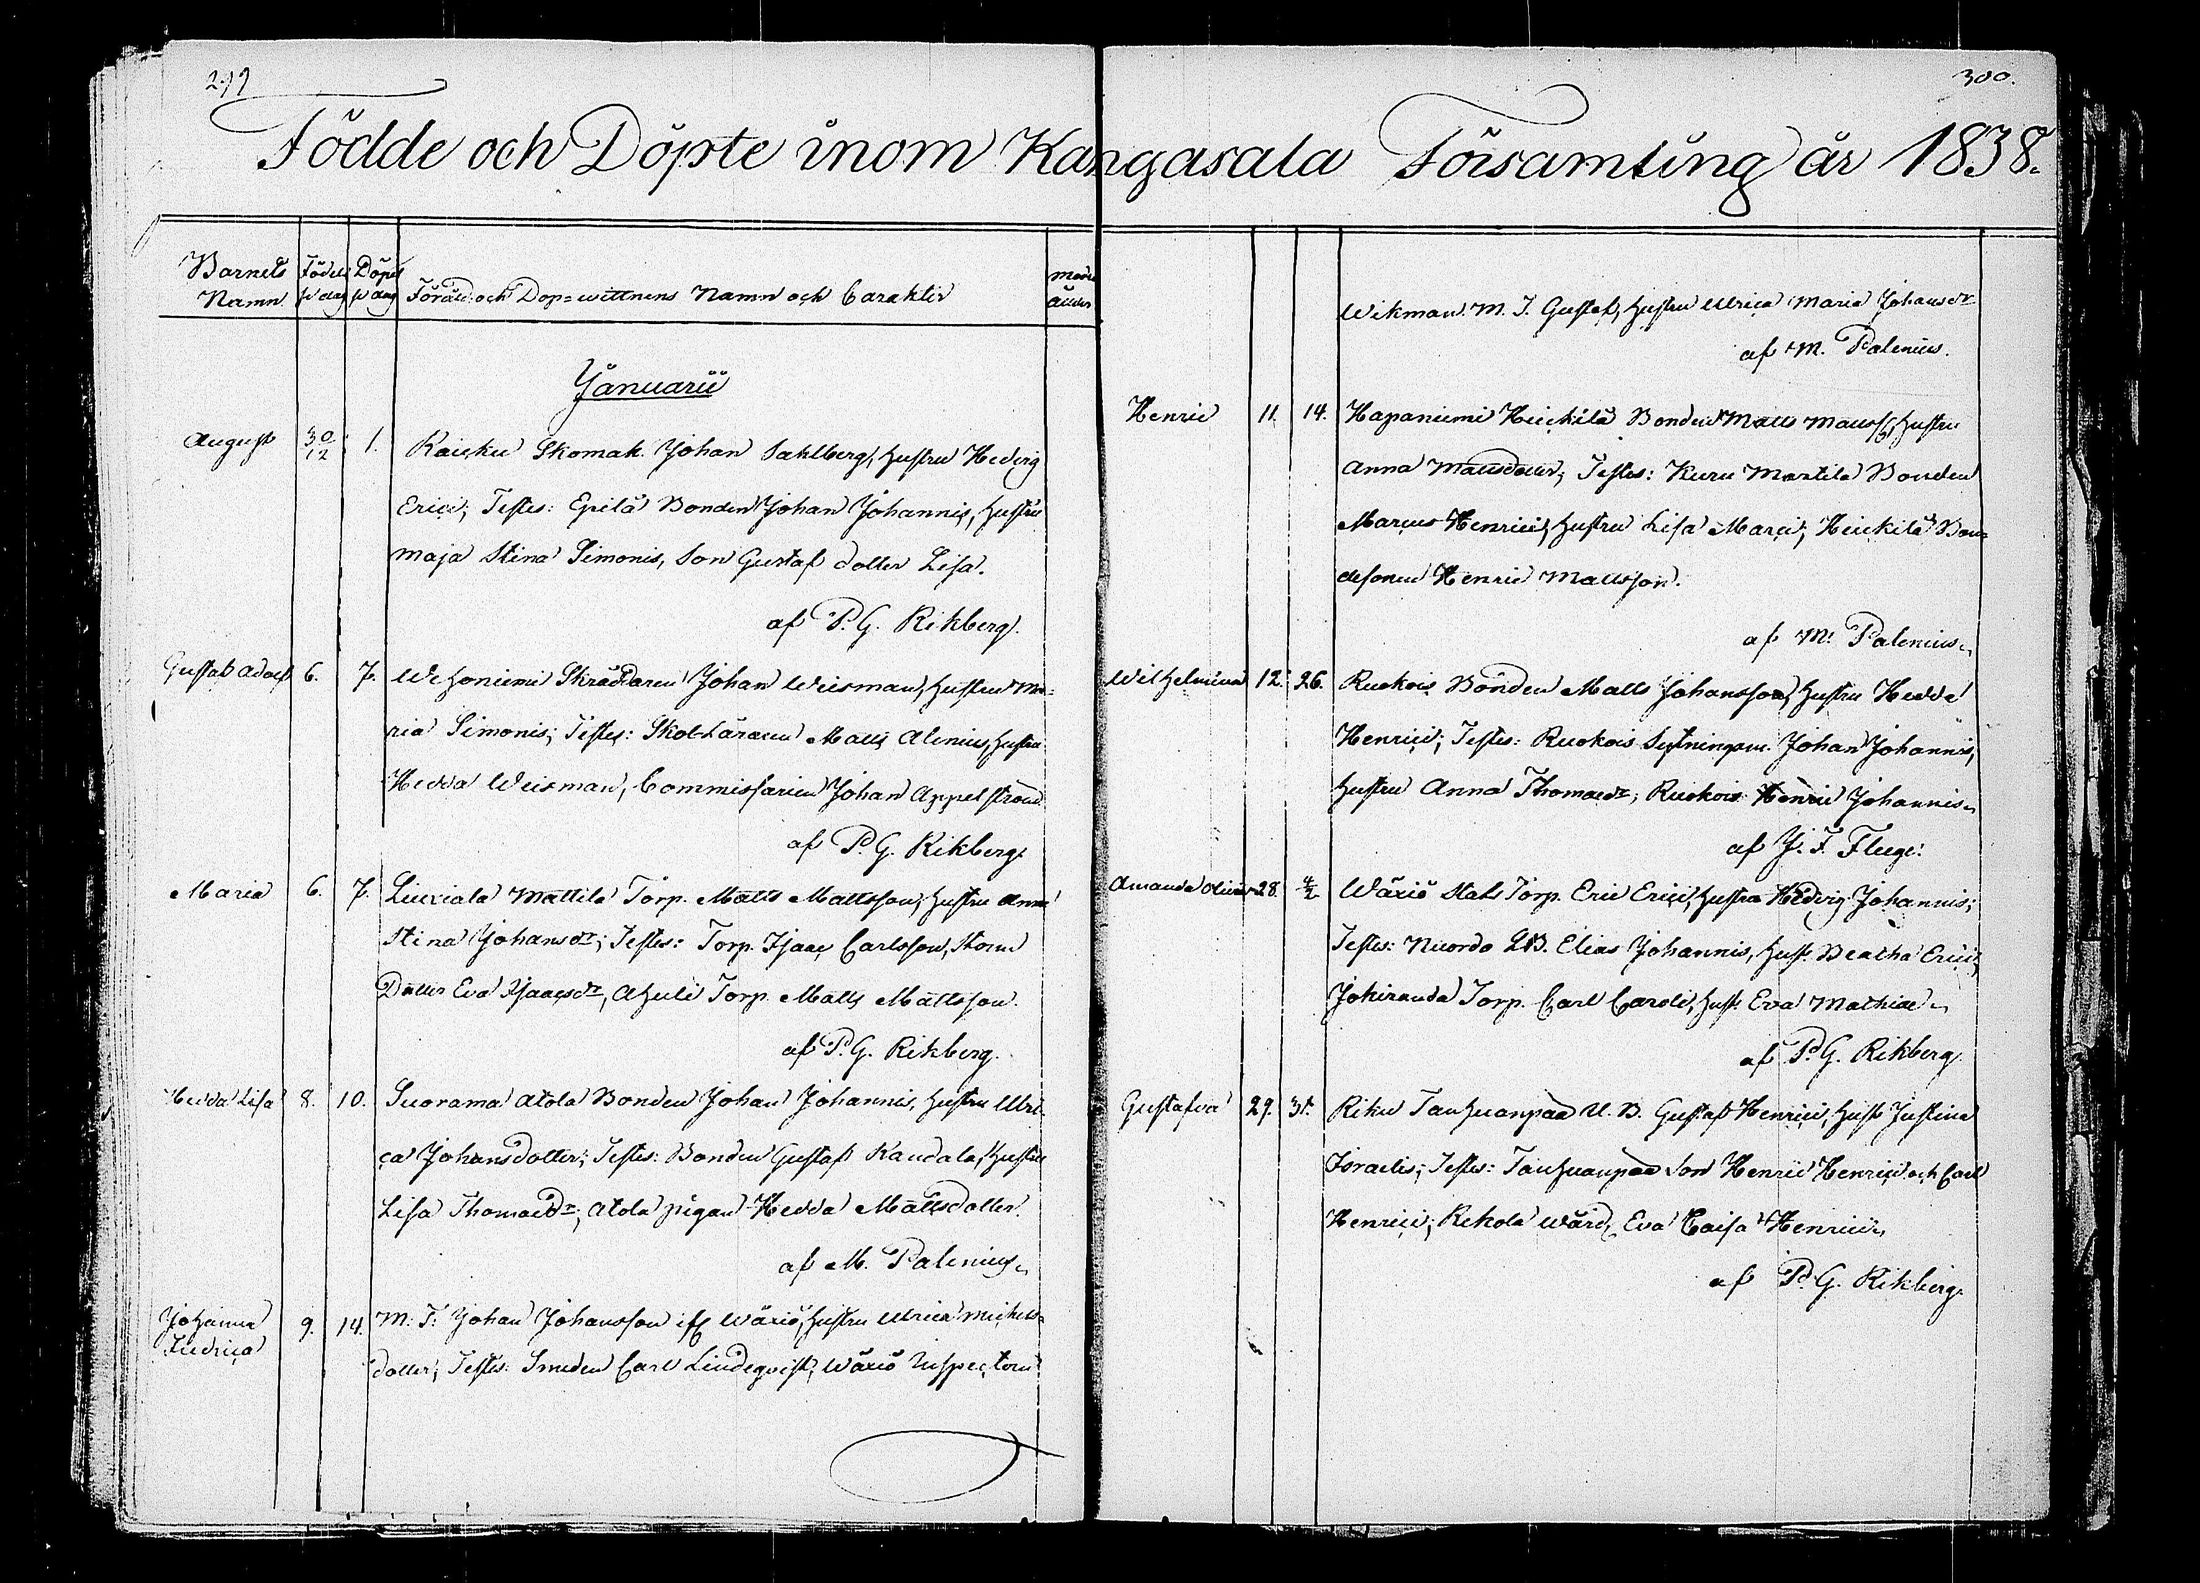 299
300.
Födde och Döpte inom Kangasala Församling år 1838.
Barnets Namn
Födels
Döpel
Föräld: och Dop-wittnens Namn och Caraktir
Januarii
August 30/12 1. Kaicku Skomak. Johan Sahlberg, hustru Hedvig
Erici; Testes: Epilä Bonden Johan Johannis, hustru
Maja Stina Simonis, Son Gustaf dotter Lisa.
af P. G. Rikberg.
Gustaf Adolf 6. 7. Wehoniemi Skräddaren Johan Weisman, hustru Ma-
ria Simonis; Testes: Skol-Läraren Matts Alenius, hustru
Hedda Weisman, Commissarien Johan Appelström
af P. G. Rikberg.
Maria 6. 7. Liuxiala Mattila Torp. Matts Mattsson, hustru Anna
Stina Johansdr; Testes: Torp. Isaac Carlsson,
Dotter Eva Isaacsdr, Ahuli Torp. Matts Mattsson.
af P. G. Rikberg.
Hedda Lisa 8. 10. Suorama Atola Bonden Johan Johannis, hustru Ulri-
ca Johansdotter; Testes: Bonden Gustaf Kaudala, hustru
Lisa Thomaedr; Atola pigan Hedda Mattsdotter.
af M. Palenius.
Johanna
Fredrica 9. 14. M. T. Johan Johansson ifr Wäxiö, hustru Ulrica Michels-
dotter; Testes: Smeden Carl Lindeqvist, Wäxiö Inspectorn
Wikman. M. T. Gustaf, hustru Ulrica Maria Johansdr
af M. Palenius.
Henric 11. 14. Hapaniemi Heickilä Bonden Matts Matts, hustru
Anna Mattsdotter; Testes: Kuru Marttila Bonden
Marcus Henrici, hustru Lisa Marci; Heickilä Bon-
desonen Henric Mattsson.
af M. Palenius.
Wilhelmina 12. 26. Ruokois Bonden Matts Johansson, hustru Hedda
Henrici; Testes: Ruokois Sytningsm. Johan Johannis,
hustru Anna Thomaedr; Ruokois Henric Johannis.
af J. F. Fleege.
Amanda Olivia 28. 4/2 Wäxiö Stats Torp. Eric Erici, hustru Hedvig Johannis;
Testes: Elias Johannis, hust. Beatha Erici,
Jokiranda Torp. Carl Caroli, hust. Eva Mathiae.
af P. G. Rikberg.
Gustafva 29. 31. Riku Tauhuanpää U. B. Gustaf Henrici, hust. Justina
Israelis; Testes: Tauhuanpää Son Henric Henrici och Carl
Henrici; Rekola wärd. Eva Caisa Henrici.
af P. G. Rikberg.